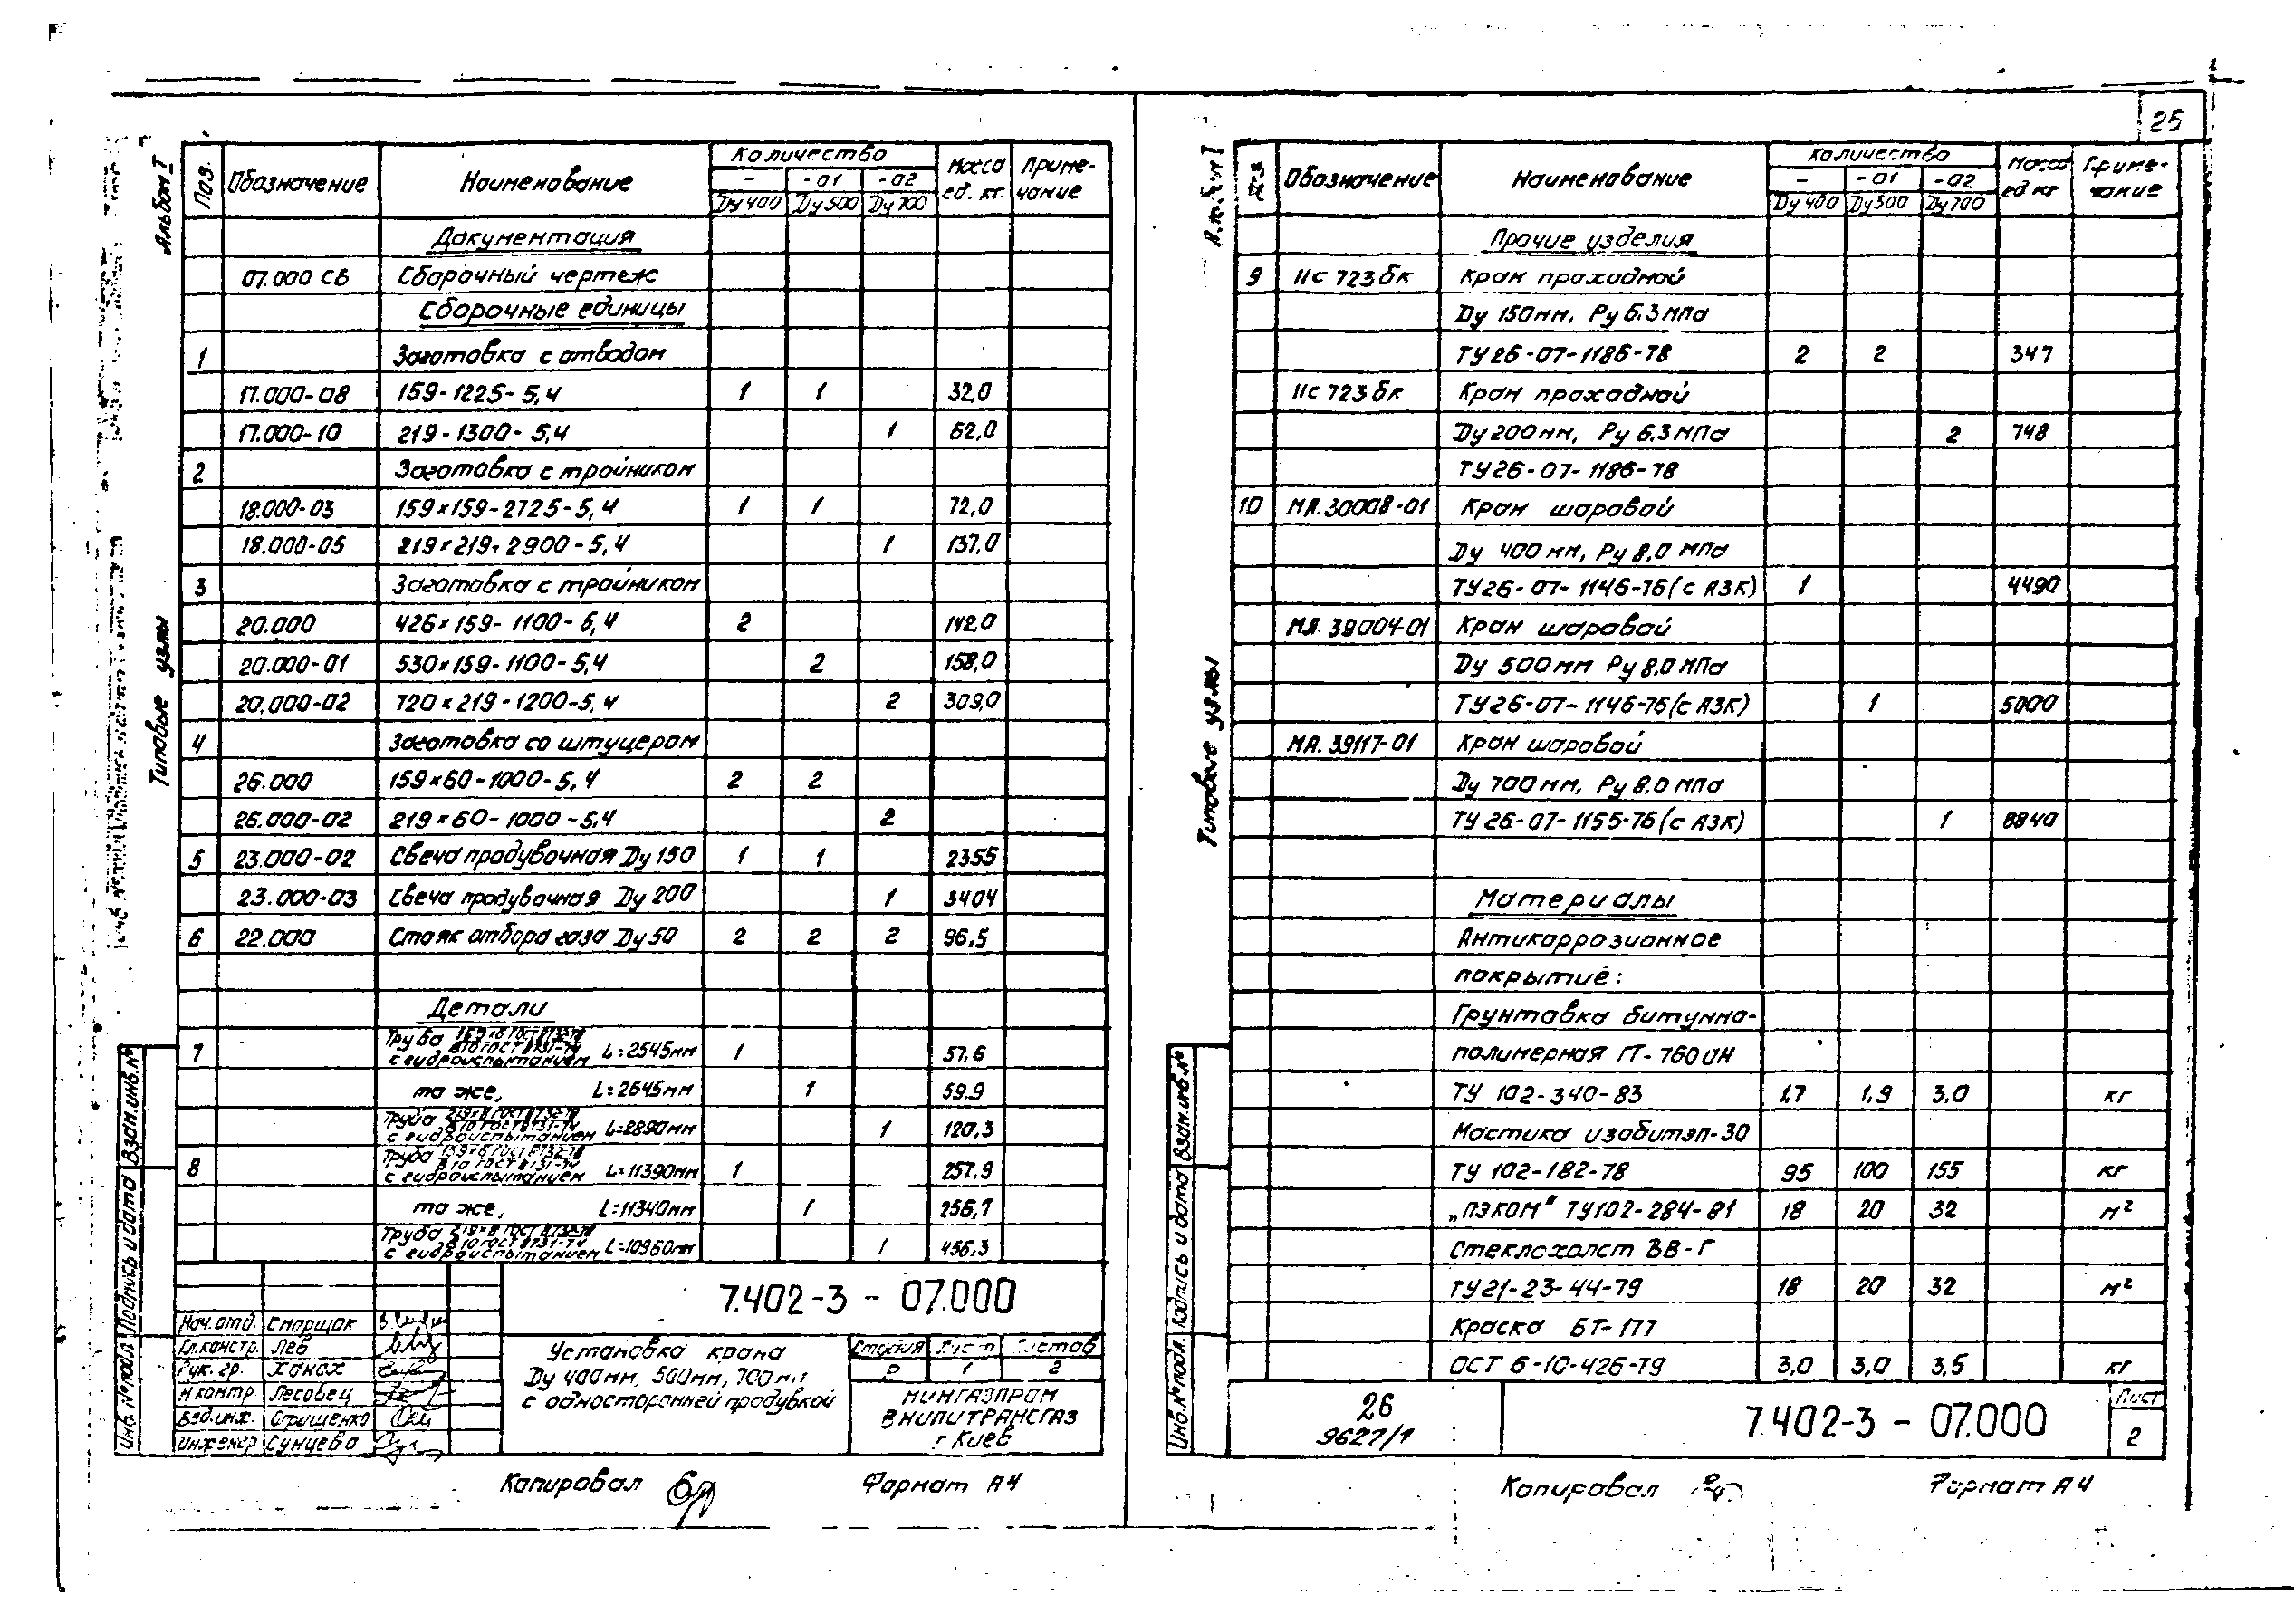 25
Альбом I
Типовые узлы
Поз. Обозначение Наименование Количество Масса ед. кг. Приме-чание
- -01 -02
Ду 400 Ду 500 Ду 700
Документация
07.000 СБ Сборочный чертеж
Сборочные единицы
1 Заготовка с отводом
17.000-08 159-1225-5,4 1 1 32,0
17.000-10 219-1300-5,4 1 62,0
2 Заготовка с тройником
18.000-03 159×159-2725-5,4 1 1 72,0
18.000-05 219×219-2900-5,4 1 137,0
3 Заготовка с тройником
20.000 426×159-1100-5,4 2 142,0
20.000-01 530×159-1100-5,4 2 158,0
20.000-02 720×219-1200-5,4 2 309,0
4 Заготовка со штуцером
26.000 159×60-1000-5,4 2 2
26.000-02 219×60-1000-5,4 2
5 23.000-02 Свеча продувочная Ду 150 1 1 2355
23.000-03 Свеча продувочная Ду 200 1 3404
6 22.000 Стояк отбора газа Ду 50 2 2 2 96,5
Детали
7 Труба 159×6 ГОСТ 8732-78 В 10 ГОСТ 8731-74 с гидроиспытанием L=2545мм 1 57,6
то же, L=2645мм 1 59,9
Труба 219×8 ГОСТ 8732-78 В 10 ГОСТ 8731-74 с гидроиспытанием L=2890мм 1 120,3
8 Труба 159×6 ГОСТ 8732-78 В 10 ГОСТ 8731-74 с гидроиспытанием L=11390мм 1 257,9
то же, L=11340мм 1 256,7
Труба 219×8 ГОСТ 8732-78 В 10 ГОСТ 8731-74 с гидроиспытанием L=10960мм 1 456,3
7.402-3-07.000
Нач. отд. Сморщок
Гл.констр. Лев
Рук. гр. Ханах
Н контр. Лесовец
Вед.инж. Стрищенко
инженер Сунцева
Установка крана
Ду 400мм, 500мм, 700мм
с односторонней продувкой
Стадия Лист Листов
Р 1 2
МИНГАЗПРОМ
ВНИПИТРАНСГАЗ
г Киев
Инв.№ подл. Подпись и дата Взам.инв.№
Копировал
Формат А4
Типовые узлы
Обозначение Наименование Количество Масса ед кг Приме-чание
- -01 -02
Ду 400 Ду 500 Ду 700
Прочие изделия
9 11с 723бк Кран проходной
Ду 150мм, Ру 6,3 мпа
ТУ 26-07-1186-78 2 2 347
11с 723бк Кран проходной
Ду 200мм, Ру 6,3 МПа 2 748
ТУ26-07-1186-78
10 МА.30008-01 Кран шаровой
Ду 400 мм, Ру 8,0 мпа
ТУ26-07-1146-76 (с АЗК) 1 4490
МА.39004-01 Кран шаровой
Ду 500мм Ру 8,0 МПа
ТУ26-07-1146-76 (с АЗК) 1 5000
МА.39117-01 Кран шаровой
Ду 700мм, Ру 8,0 мпа
ТУ 26-07-1155-76 (с АЗК) 1 8840
Материалы
Антикоррозионное
покрытие:
Грунтовка битумно-
полимерная ГТ-760ИН
ТУ 102-340-83 1,7 1,9 3,0 кг
Мастика изобитэп-30
ТУ 102-182-78 95 100 155 кг
„ПЭКОМ" ТУ102-284-81 18 20 32 м²
Стеклохолст ВВ-Г
ТУ21-23-44-79 18 20 32 м²
Краска БТ-177
ОСТ 6-10-426-79 3,0 3,0 3,5 кг
26
9627/1
7.402-3-07.000
Лист
2
Инв.№ подл. Подпись и дата Взам.инв.№
Копировал
Формат А4